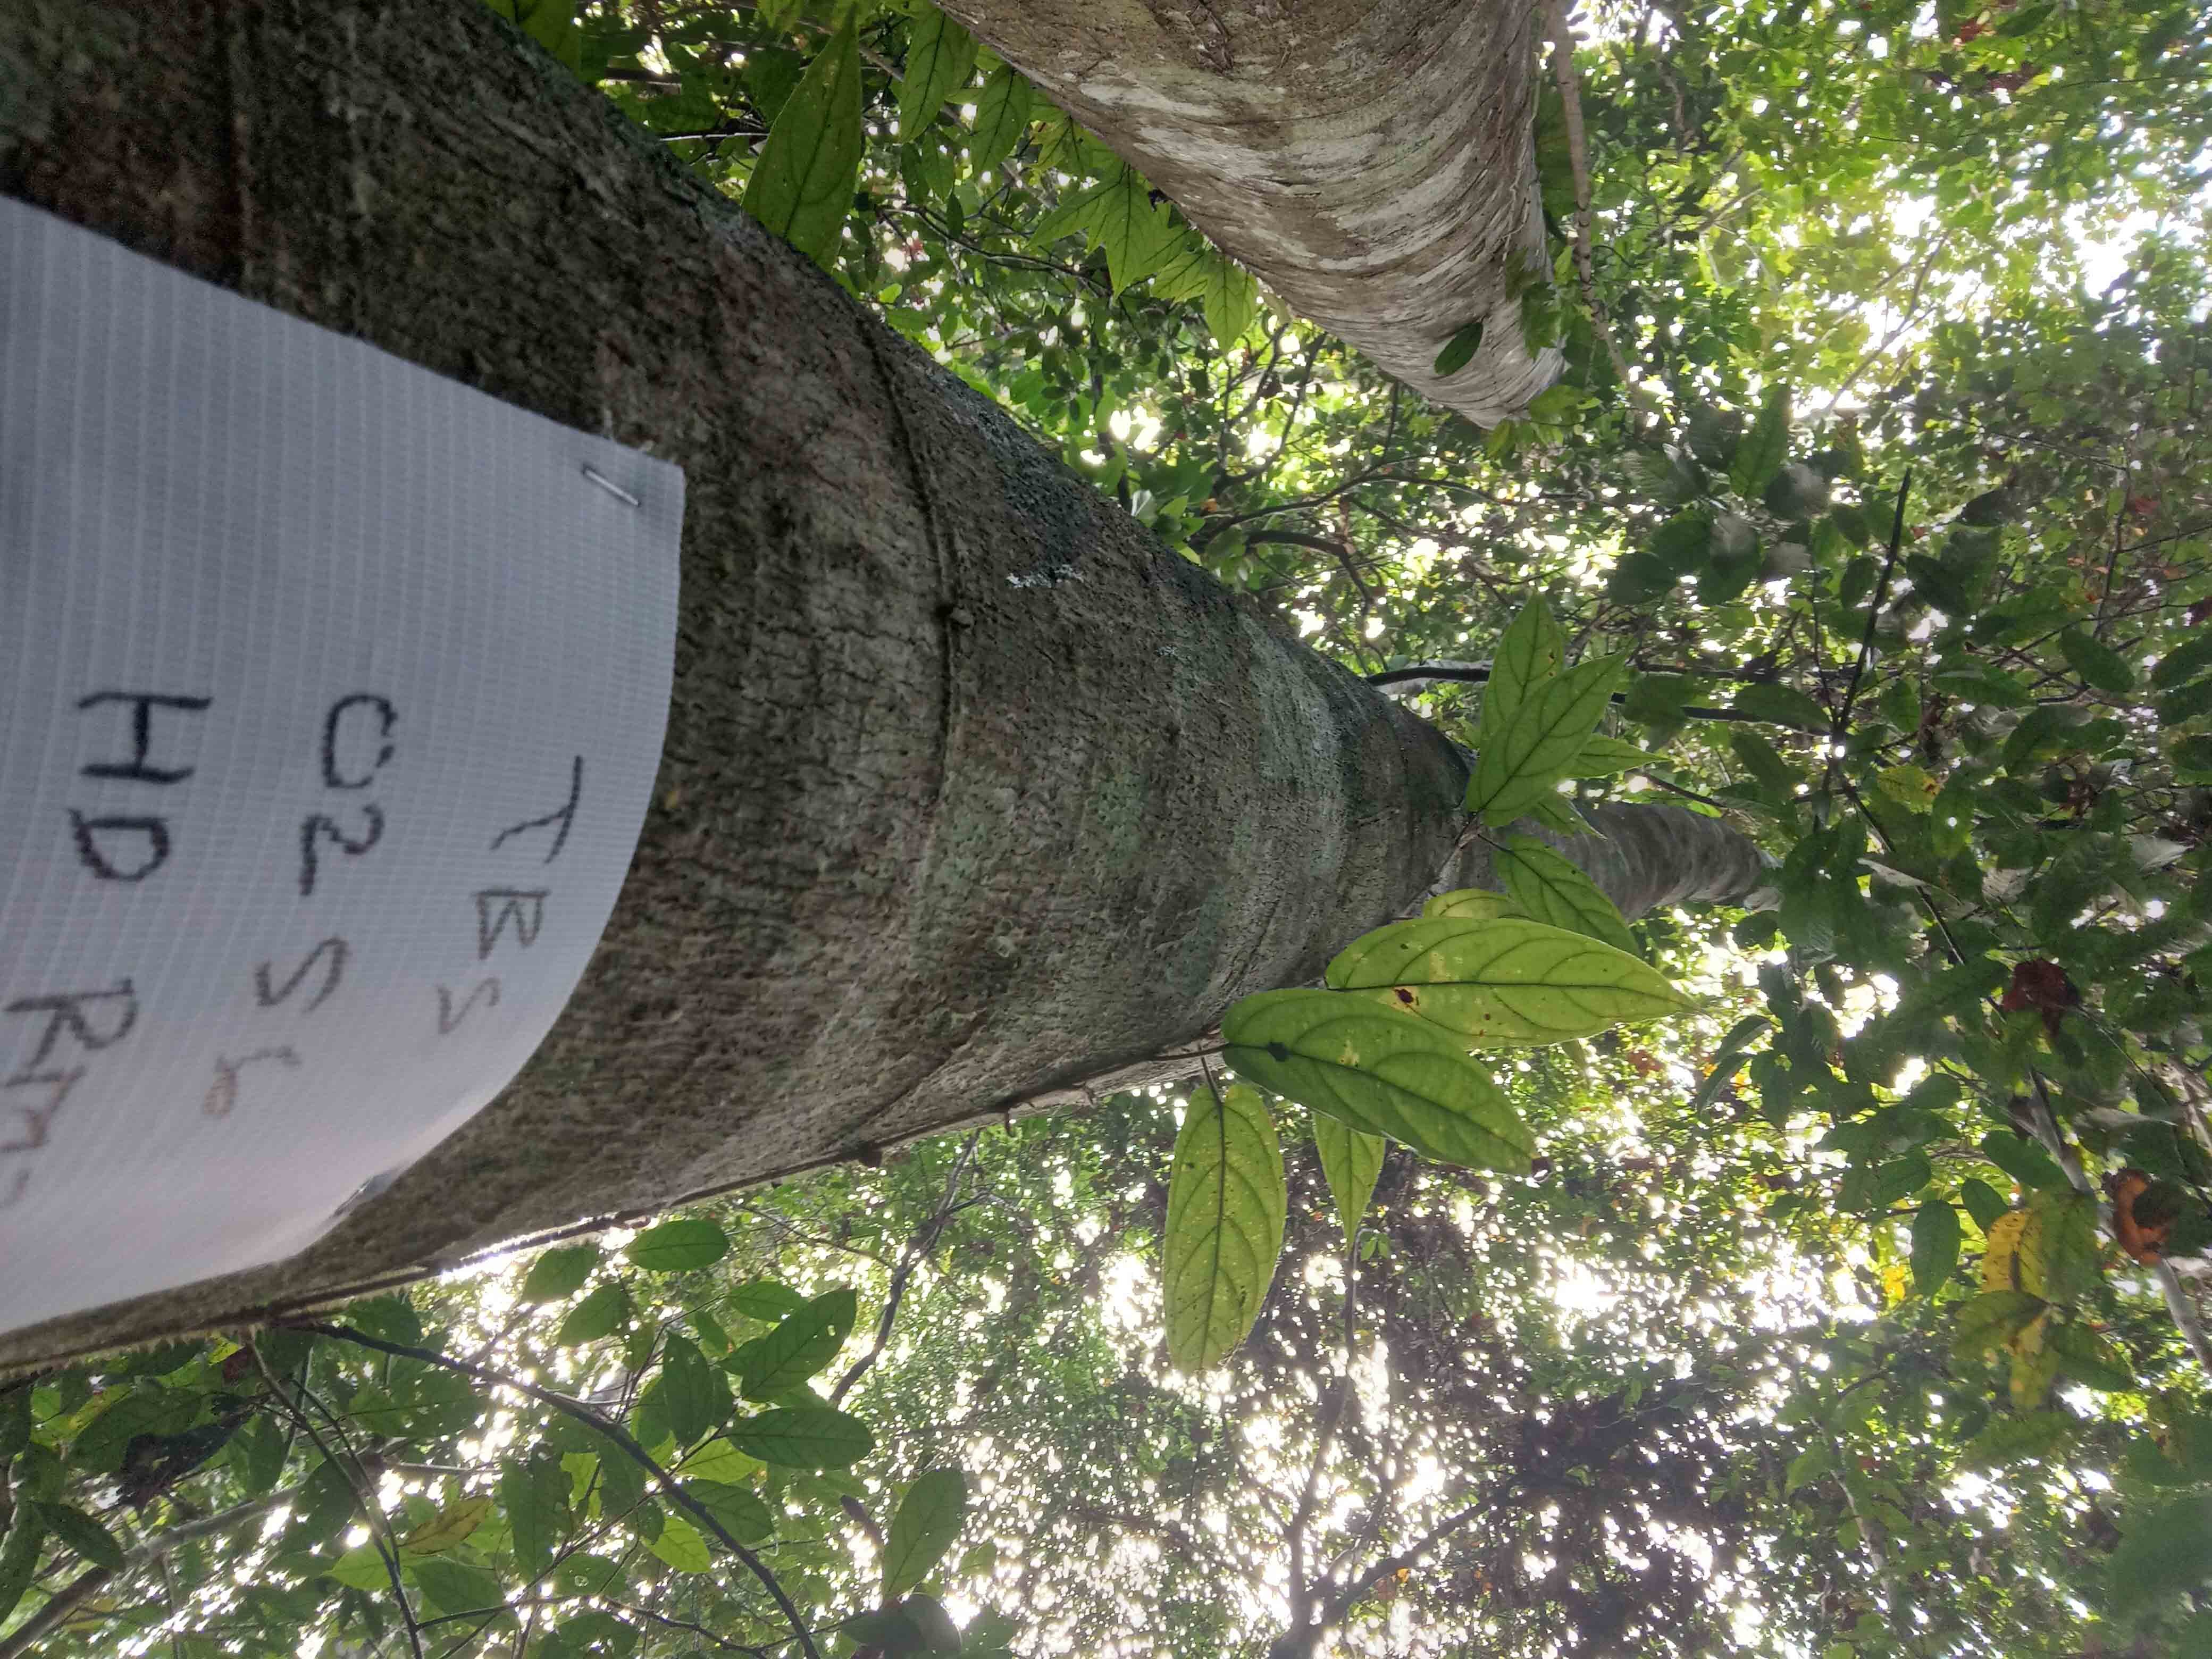 TBS
02 S6
HD